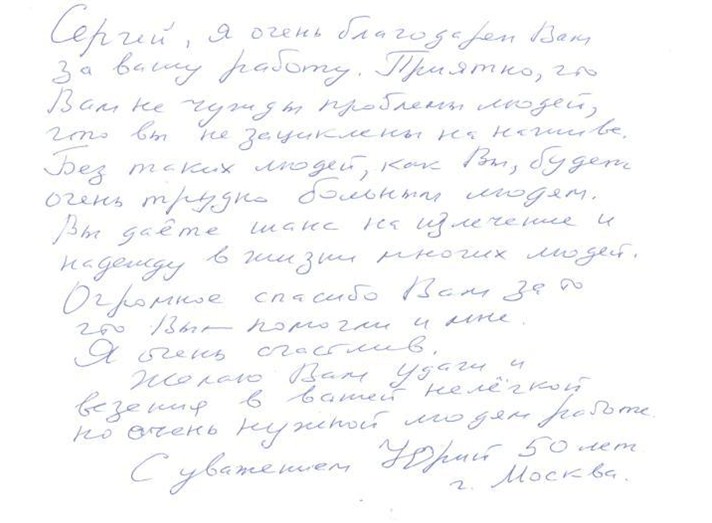 Сергей, я очень благодарен Вам
за вашу работу. Приятно, что
Вам не чужды проблемы людей,
что вы не зациклены на наживе.
Без таких людей, как Вы, будет
очень трудно больным людям.
Вы даёте шанс на излечение и
надежду в жизни многих людей.
Огромное спасибо Вам за то
что Вы помогли и мне.
Я очень счастлив.
Желаю Вам удачи и
везения в вашей нелёгкой
но очень нужной людям работе.
С уважением Юрий 50 лет
г. Москва.